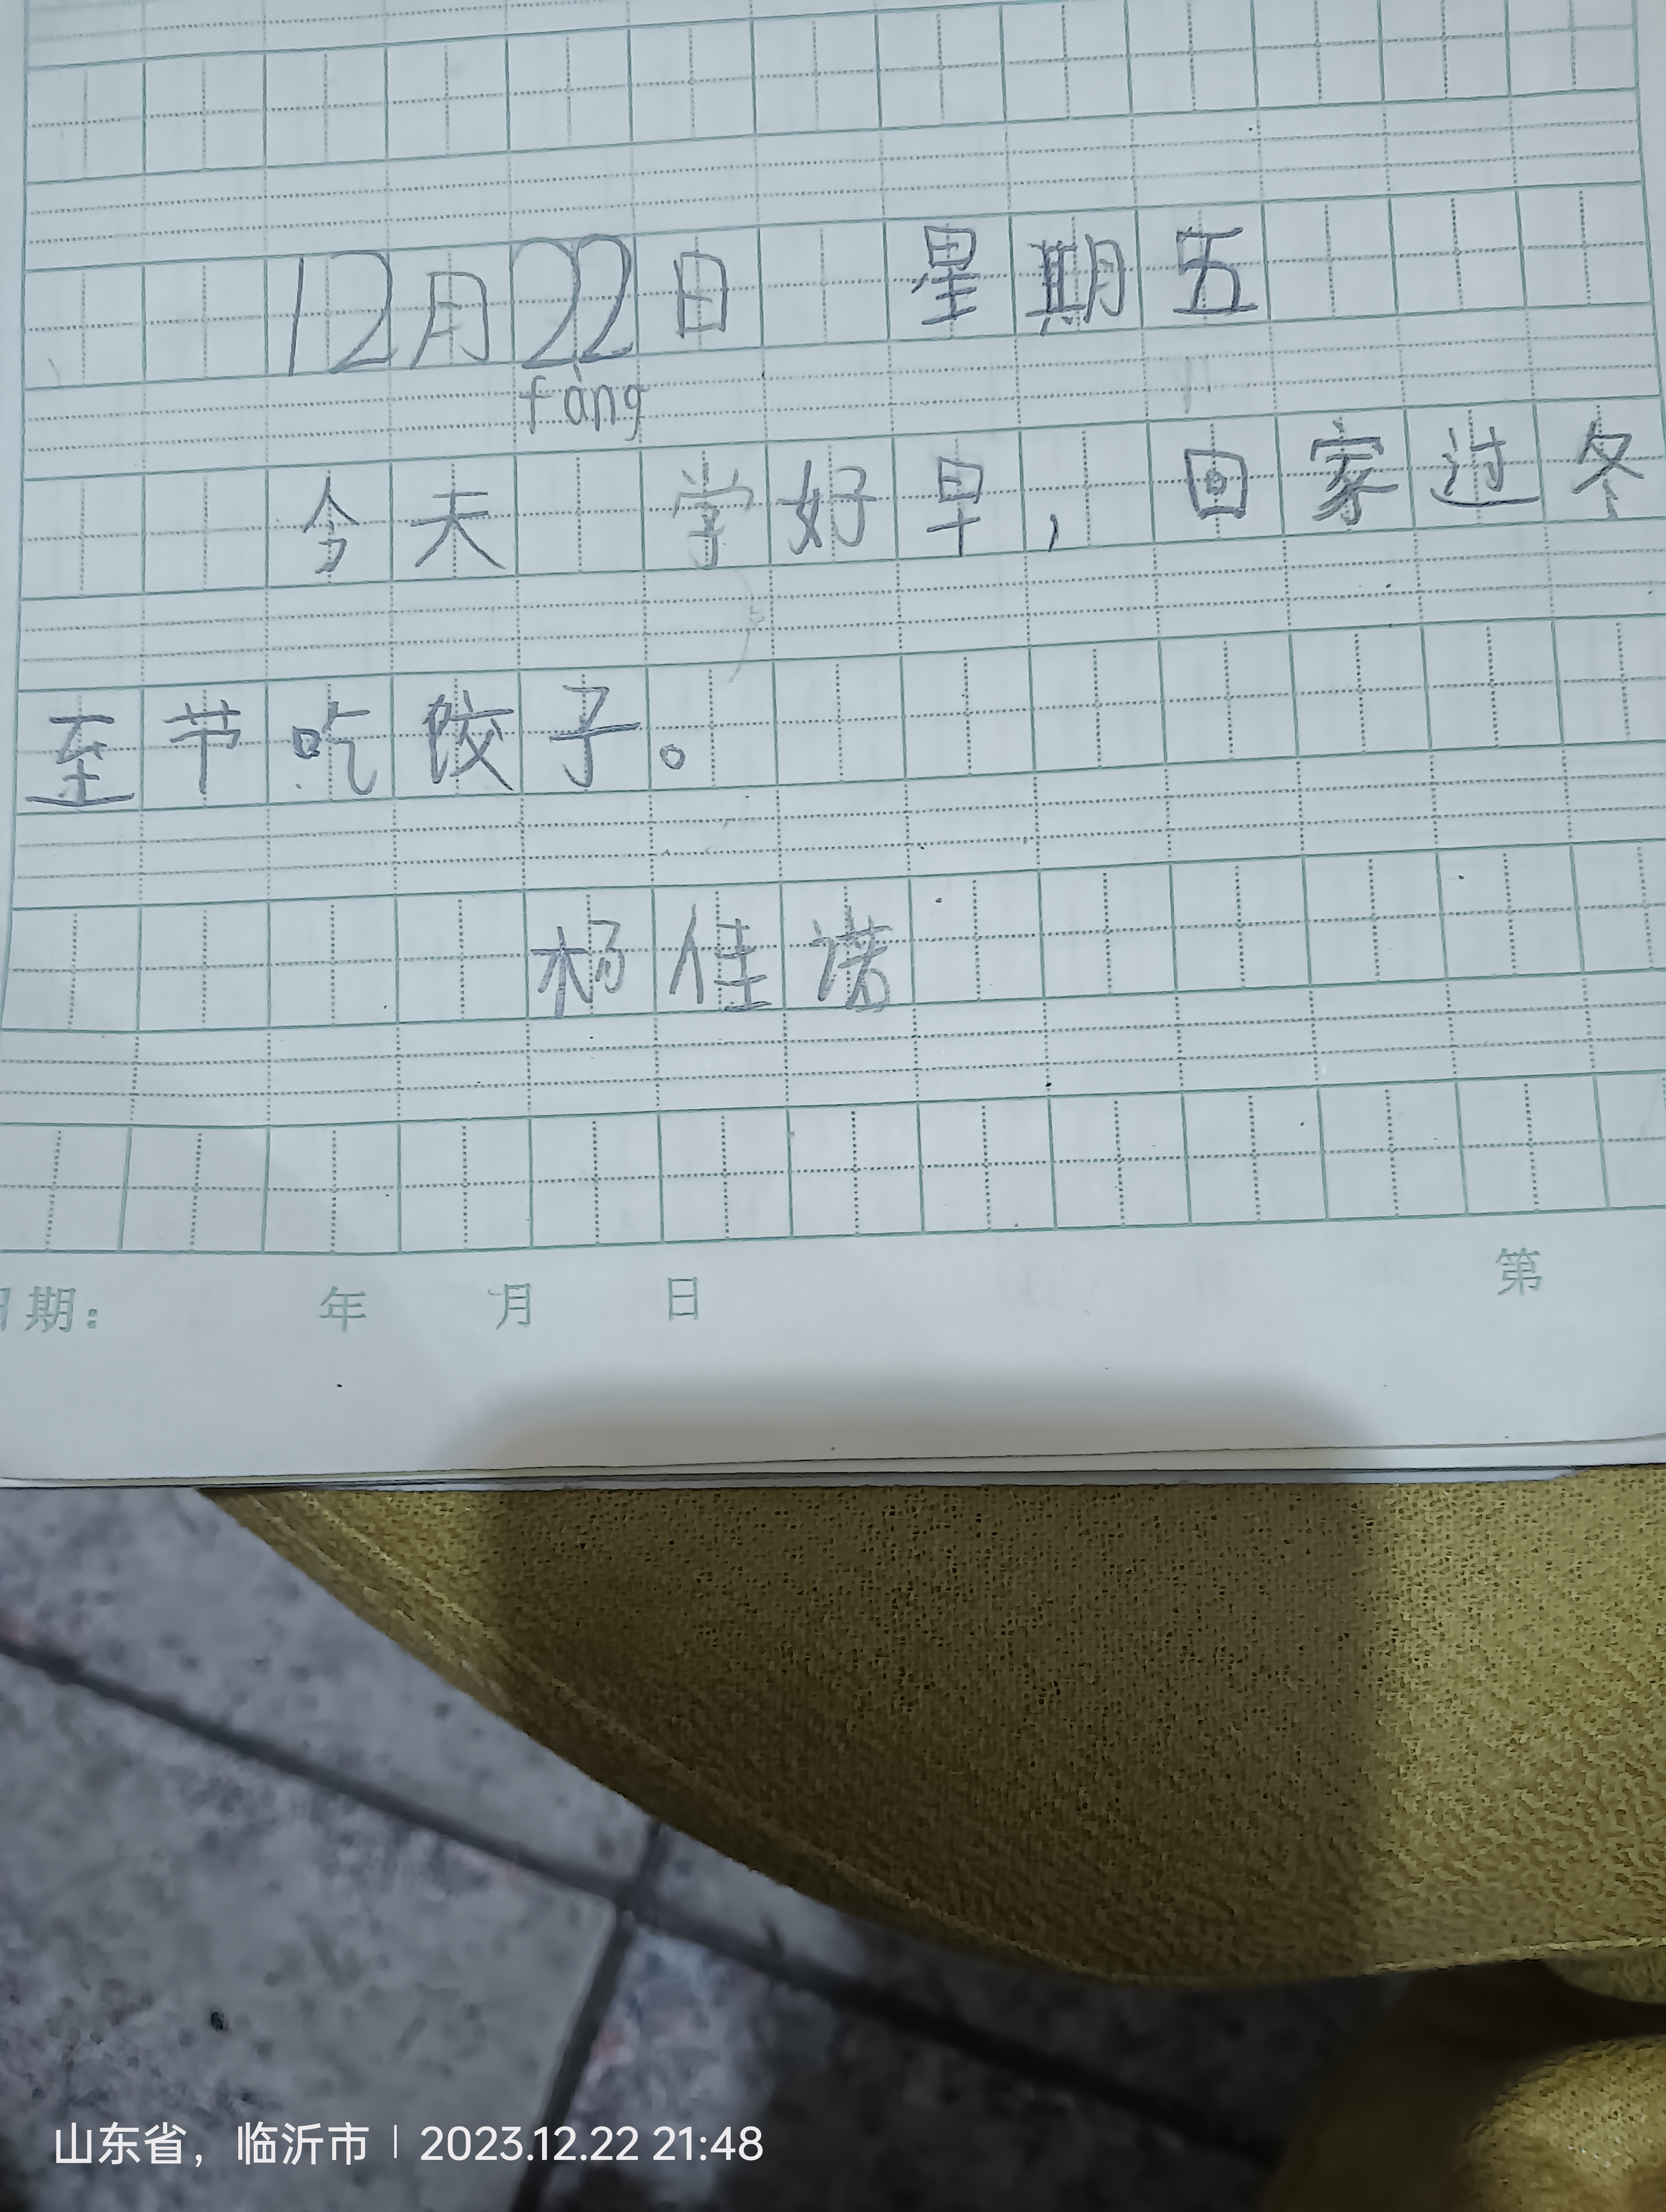 12月22日 星期五
fàng
今天 学好早，回家过冬
至节吃饺子。
杨佳诺
日期： 年 月 日 第
山东省，临沂市 | 2023.12.22 21:48